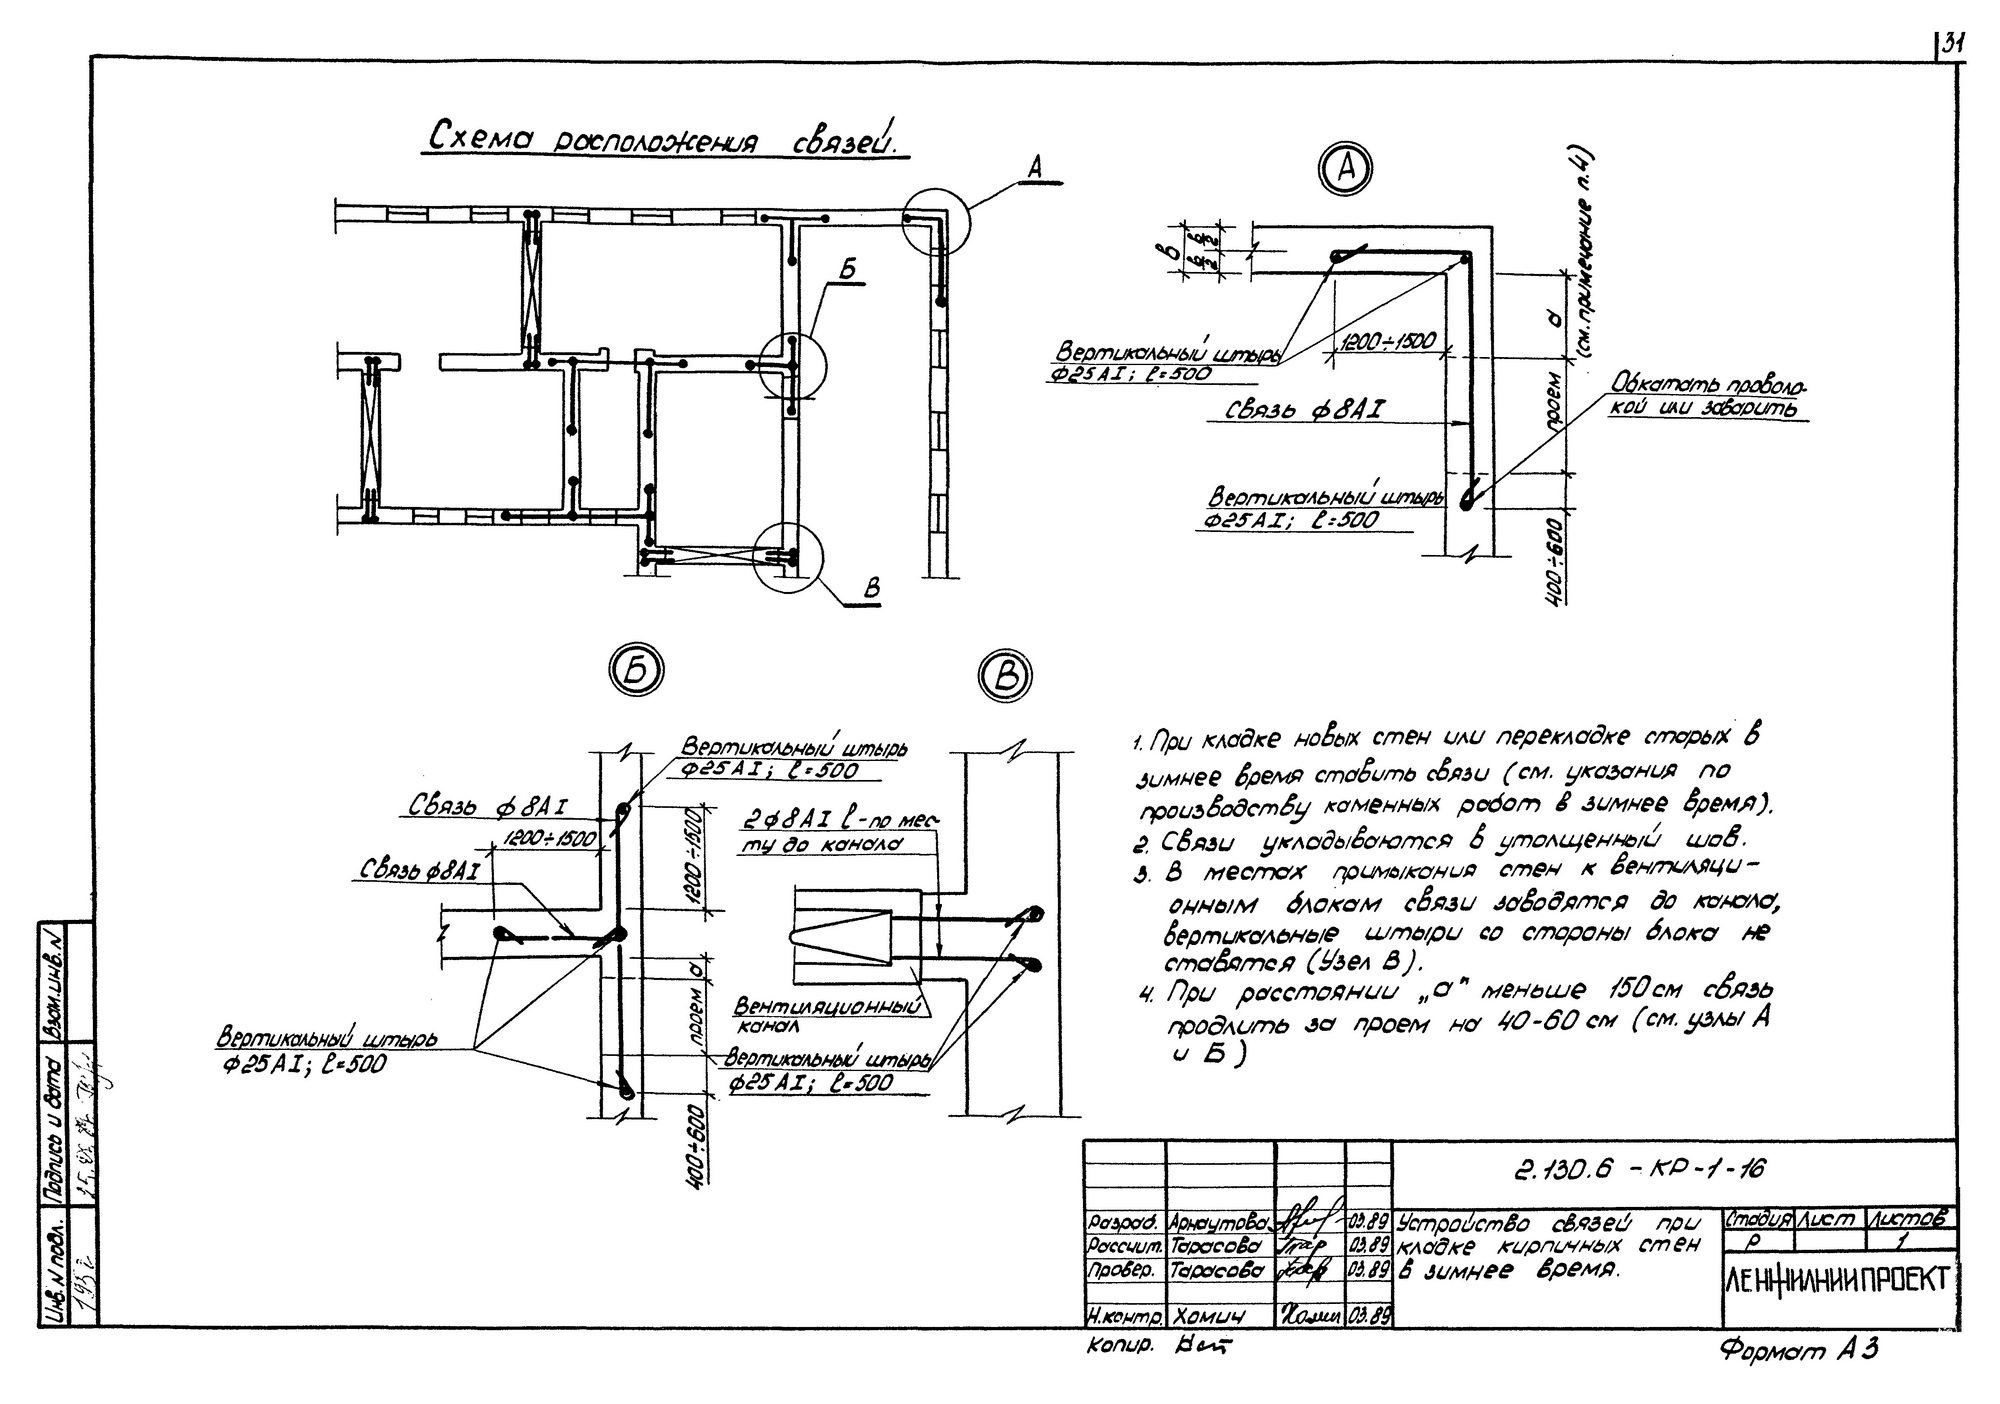 31
Схема расположения связей.
А
Б
В
А
в
в/2
в/2
Вертикальный штырь
ф25АI; ℓ=500
1200÷1500
Связь ф8АI
Вертикальный штырь
ф25АI; ℓ=500
(см. примечание п.4)
а
проем
400÷600
Обкатать проволо-
кой или заварить
Б
Вертикальный штырь
ф25АI; ℓ=500
Связь ф8АI
1200÷1500
Связь ф8АI
1200÷1500
а
проем
400÷600
Вертикальный штырь
ф25АI; ℓ=500
В
2ф8АI ℓ-по мес-
ту до канала
Вентиляционный
канал
Вертикальный штырь
ф25АI; ℓ=500
1. При кладке новых стен или перекладке старых в
зимнее время ставить связи (см. указания по
производству каменных работ в зимнее время).
2. Связи укладываются в утолщенный шов.
3. В местах примыкания стен к вентиляци-
онным блокам связи заводятся до канала,
вертикальные штыри со стороны блока не
ставятся (Узел В).
4. При расстоянии „а" меньше 150 см связь
продлить за проем на 40-60 см (см. узлы А
и Б)
2.130.6 - КР-1-16
Разраб. Арнаутова 03.89
Рассчит. Тарасова 03.89
Провер. Тарасова 03.89
Н.контр. Хомич Хомич 03.89
Устройство связей при
кладке кирпичных стен
в зимнее время.
Стадия Лист Листов
Р 1
ЛЕНЖИЛНИИПРОЕКТ
Копир.
Формат А3
Взам.инв.N
Подпись и дата
Инв.N подл.